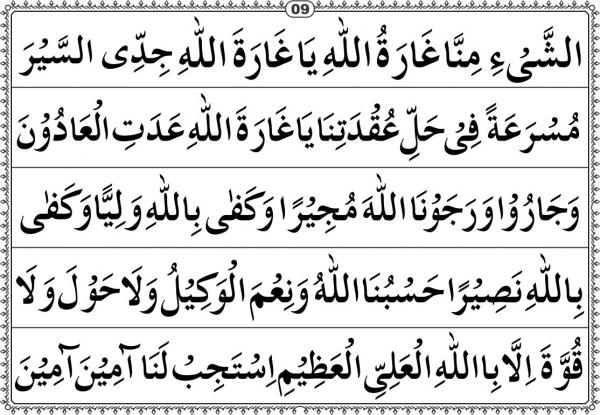 09
الشَّیْءِ مِنَّا غَارَةُ اللهِ یَا غَارَةَ اللهِ جِدِّی السَّیْرَ
مُسْرَعَةً فِیْ حَلِّ عُقْدَتِنَا یَا غَارَةَ اللهِ عَدَتِ الْعَادُوْنَ
وَجَارُوْا وَرَجَوْنَا اللهَ مُجِیْرًا وَکَفٰی بِاللهِ وَلِیًّا وَکَفٰی
بِاللهِ نَصِیْرًا حَسْبُنَا اللهُ وَنِعْمَ الْوَکِیْلُ وَلَا حَوْلَ وَلَا
قُوَّةَ اِلَّا بِااللهِ الْعَلِیِّ الْعَظِیْمِ اِسْتَجِبْ لَنَا آمِیْنَ آمِیْنَ